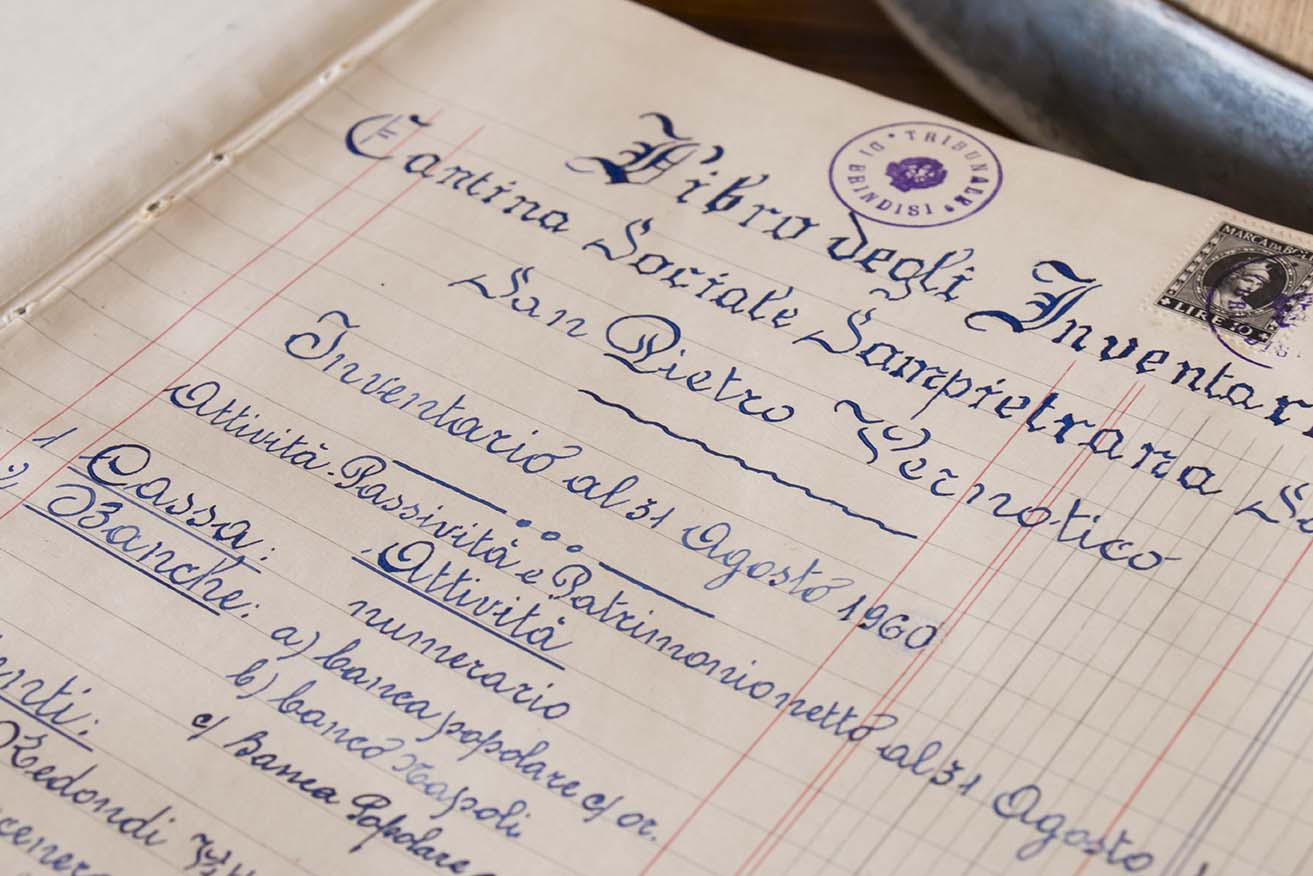 Libro degli Inventari
TRIBUNALE DI BRINDISI
MARCA DA BOLLO
LIRE
Cantina Sociale Sampietrana
San Pietro Vernotico
Inventario al 31 Agosto 1960
Attività. Passività e Patrimonio netto al 31 Agosto
Attività
1 Cassa: numerario
2) Banche: a) banca popolare c/ or.
b) banco Napoli
c/ Banca Popolare
Redondi